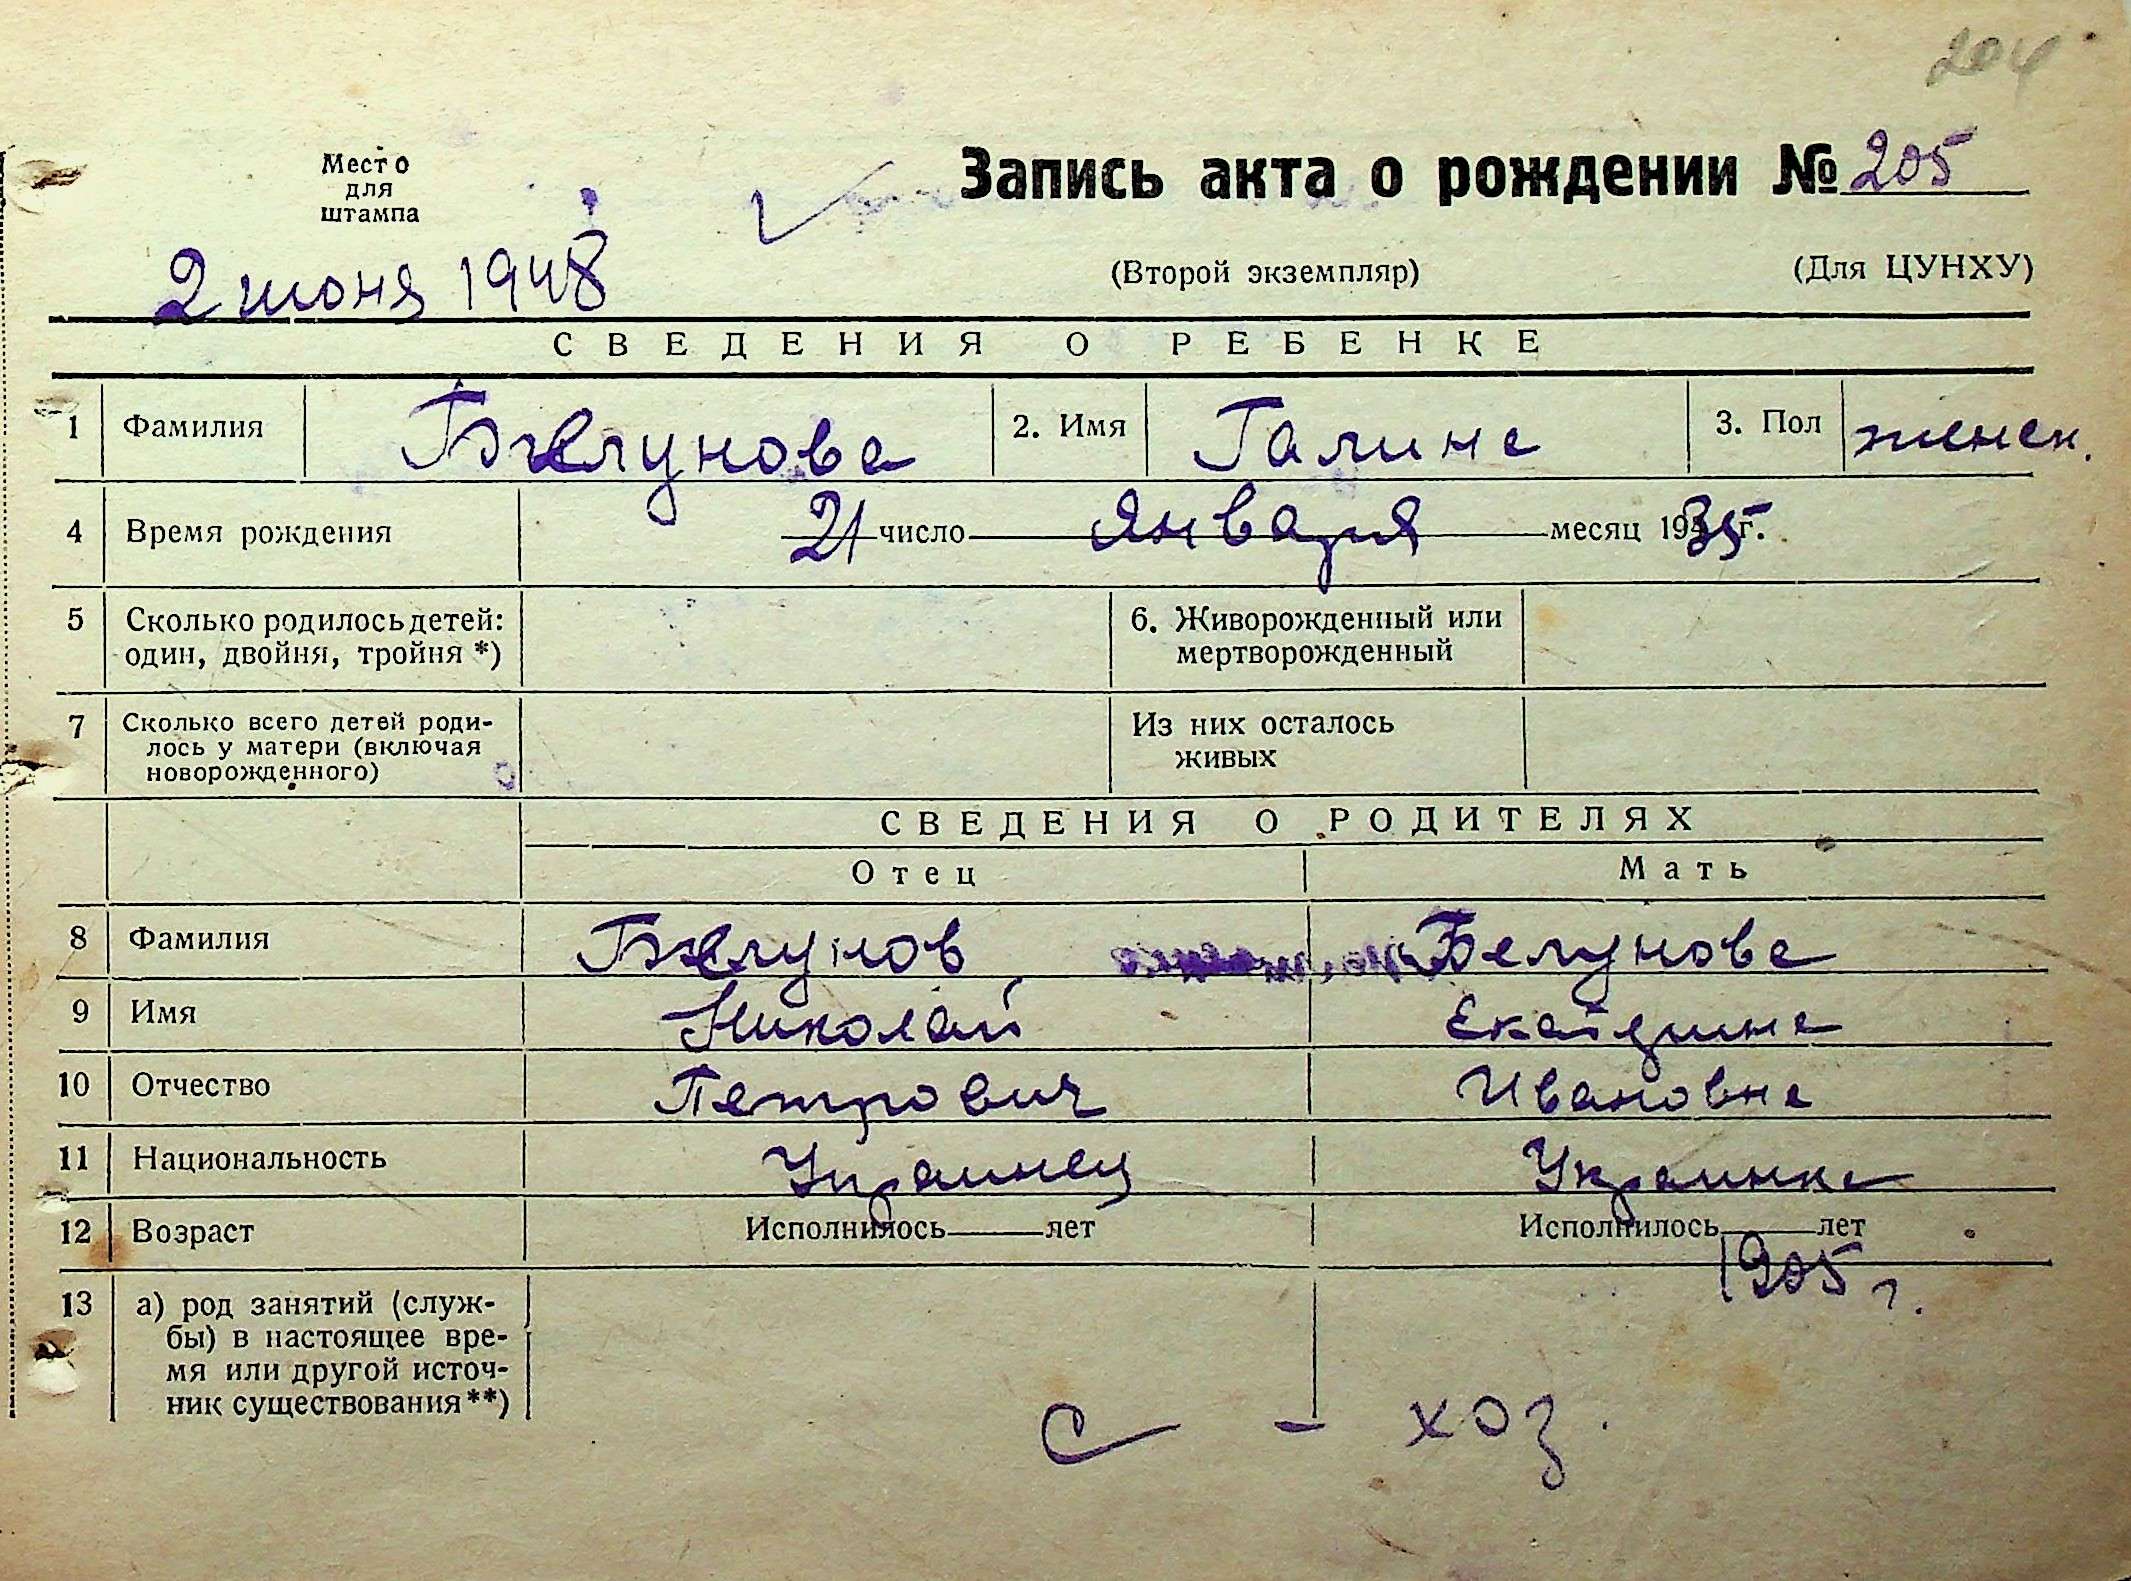 204
Место
для
штампа
Запись акта о рождении № 205
2 июня 1948
(Второй экземпляр) (Для ЦУНХУ)
СВЕДЕНИЯ О РЕБЕНКЕ
1 Фамилия Белунова 2. Имя Галина 3. Пол женск.
4 Время рождения 21 число января месяц 1935 г.
5 Сколько родилось детей: 6. Живорожденный или
один, двойня, тройня *) мертворожденный
7 Сколько всего детей роди- Из них осталось
лось у матери (включая живых
новорожденного)
СВЕДЕНИЯ О РОДИТЕЛЯХ
Отец Мать
8 Фамилия Белунов Белунова
9 Имя Николай Екатерина
10 Отчество Петрович Ивановна
11 Национальность Украинец Украинка
12 Возраст Исполнилось лет Исполнилось лет
1905 г.
13 а) род занятий (служ-
бы) в настоящее вре-
мя или другой источ-
ник существования**)
с - хоз.